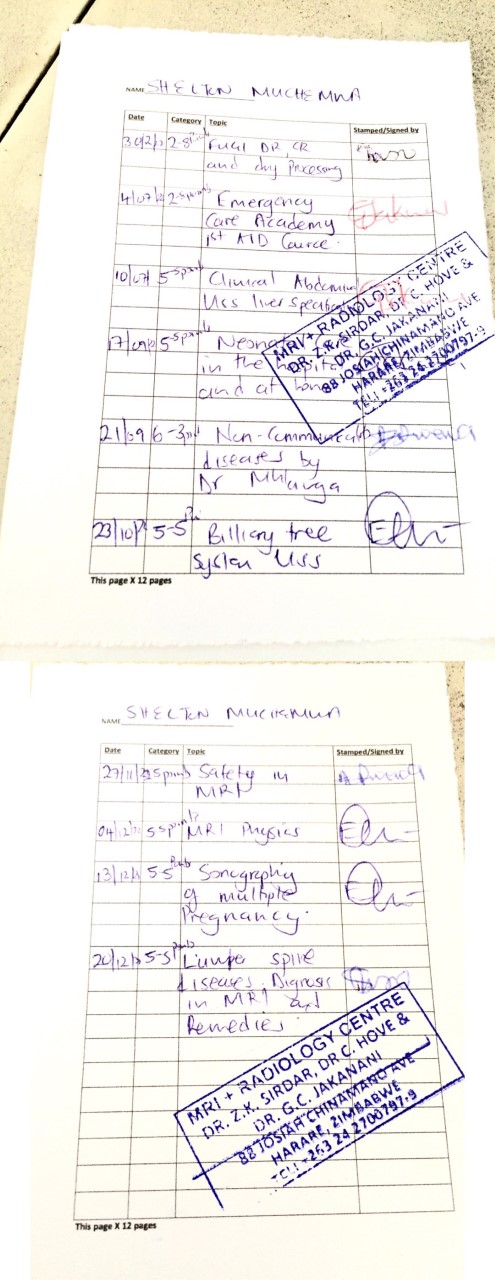 NAME SHELTON MUCHEMWA
Date Category Topic Stamped/Signed by
Fuji DR, CR
and dry Processing
Emergency
Care Academy
1st AID Cource.
10/07 5 Clinical Abdominal
Uss liver
5-5
in the
and at
21/09 6-3 Non-Communicable
diseases by
Dr
23/10 5-5 Billiary tree
System Uss
MRI + RADIOLOGY CENTRE
DR. Z.K. SIRDAR, DR C. HOVE &
DR. G.C. JAKANANI
88 JOSIAH CHINAMANO AVE
HARARE, ZIMBABWE
TEL: +263 24 2700797-9
This page X 12 pages
NAME SHELTON MUCHEMWA
Date Category Topic Stamped/Signed by
27/11 Safety in
MRI
04/12 5 MRI Physics
13/12 5-5 Points Sonography
of multiple
Pregnancy.
20/12 5-5 Points spine
diseases Dignosis
in MRI and
Remedies.
MRI + RADIOLOGY CENTRE
DR. Z.K. SIRDAR, DR C. HOVE &
DR. G.C. JAKANANI
88 JOSIAH CHINAMANO AVE
HARARE, ZIMBABWE
TEL: +263 24 2700797-9
This page X 12 pages